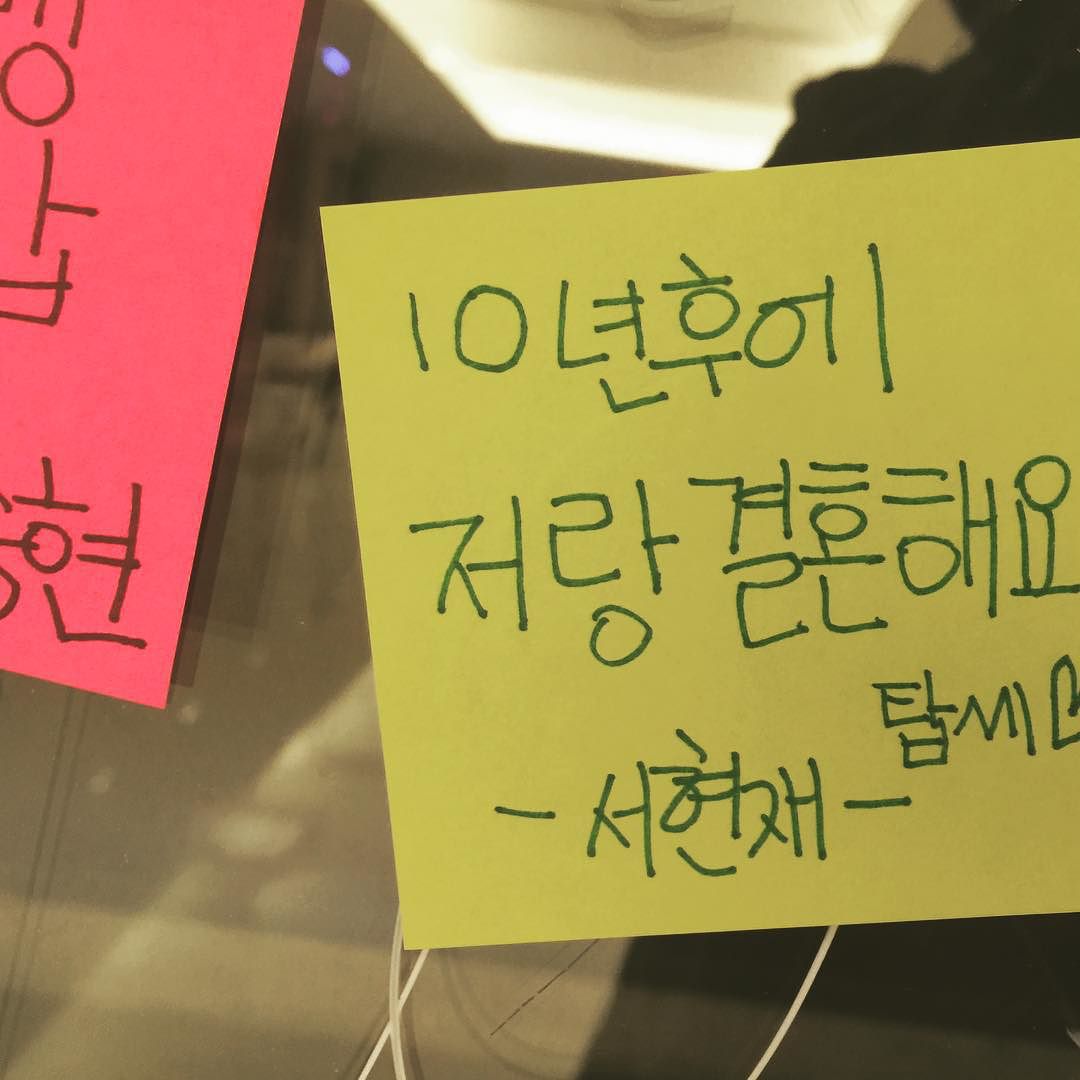 10년후에
저랑 결혼해요
탑세♡
- 서현재 -